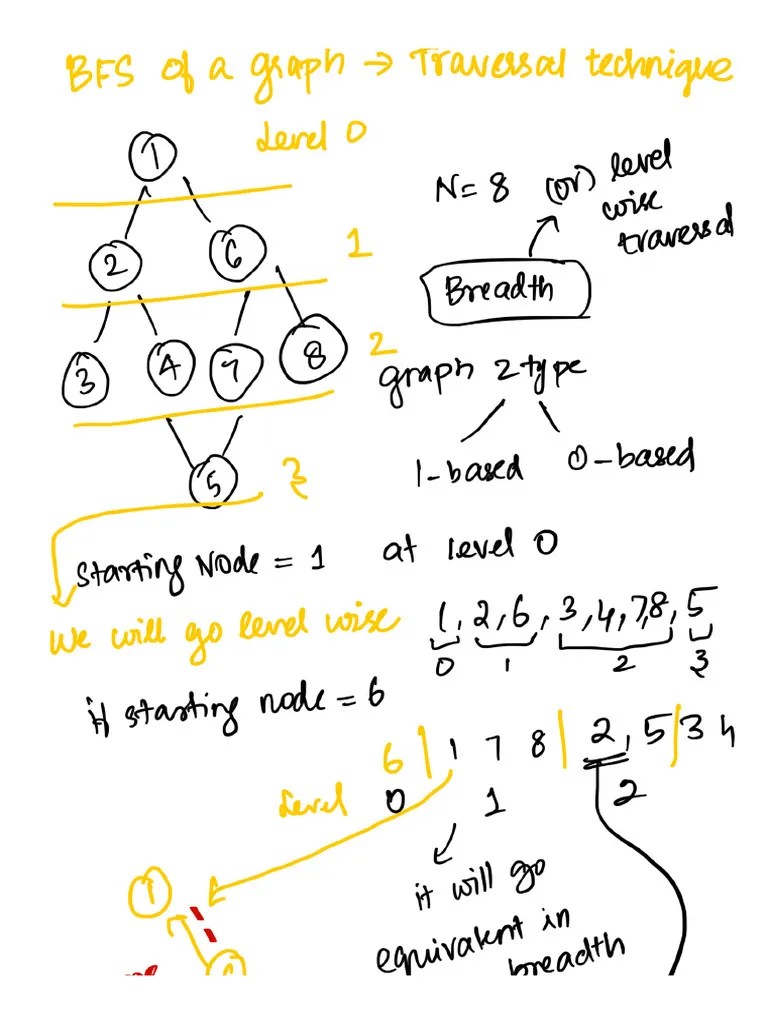 BFS of a graph → Traversal technique
Level 0
1
N = 8 (or) level
wise
traversal
2 6 1
Breadth
3 4 7 8 2
graph 2 type
1-based 0-based
5 3
Starting Node = 1 at level 0
We will go level wise 1, 2, 6, 3, 4, 7, 8, 5
0 1 2 3
if starting node = 6
6 | 1 7 8 | 2, 5 | 3 4
Level 0 1 2
it will go
equivalent in
breadth
1